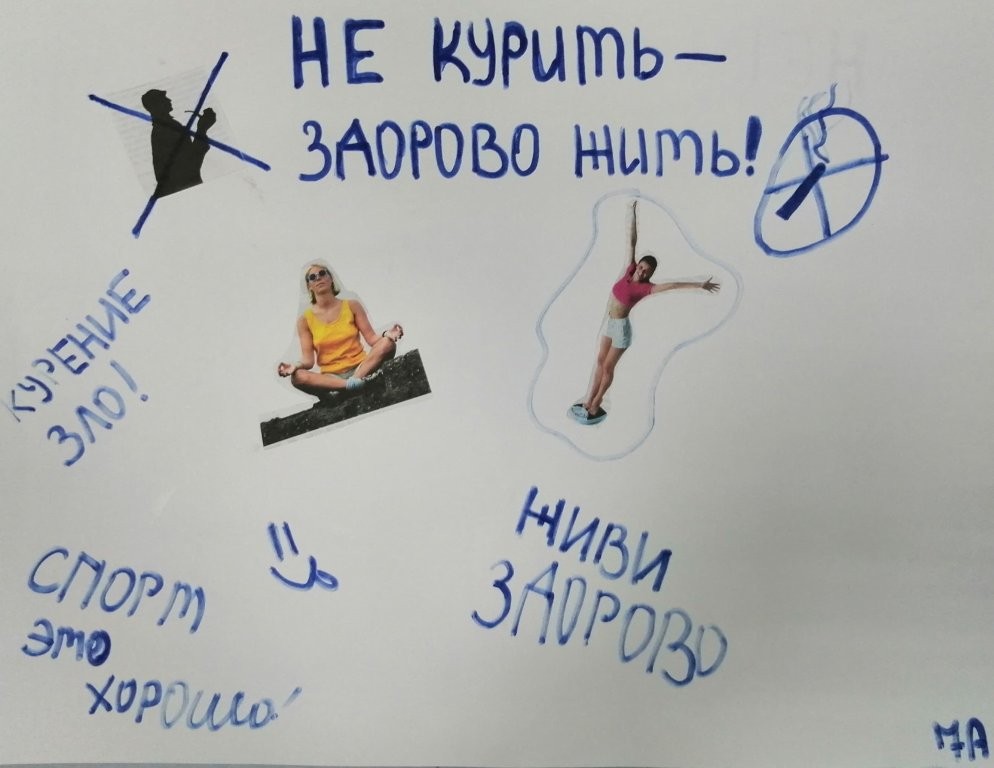 НЕ КУРИТЬ –
ЗДОРОВО ЖИТЬ!
КУРЕНИЕ
ЗЛО!
ЖИВИ
ЗДОРОВО
СПОРТ
ЭТО
ХОРОШО!
7А